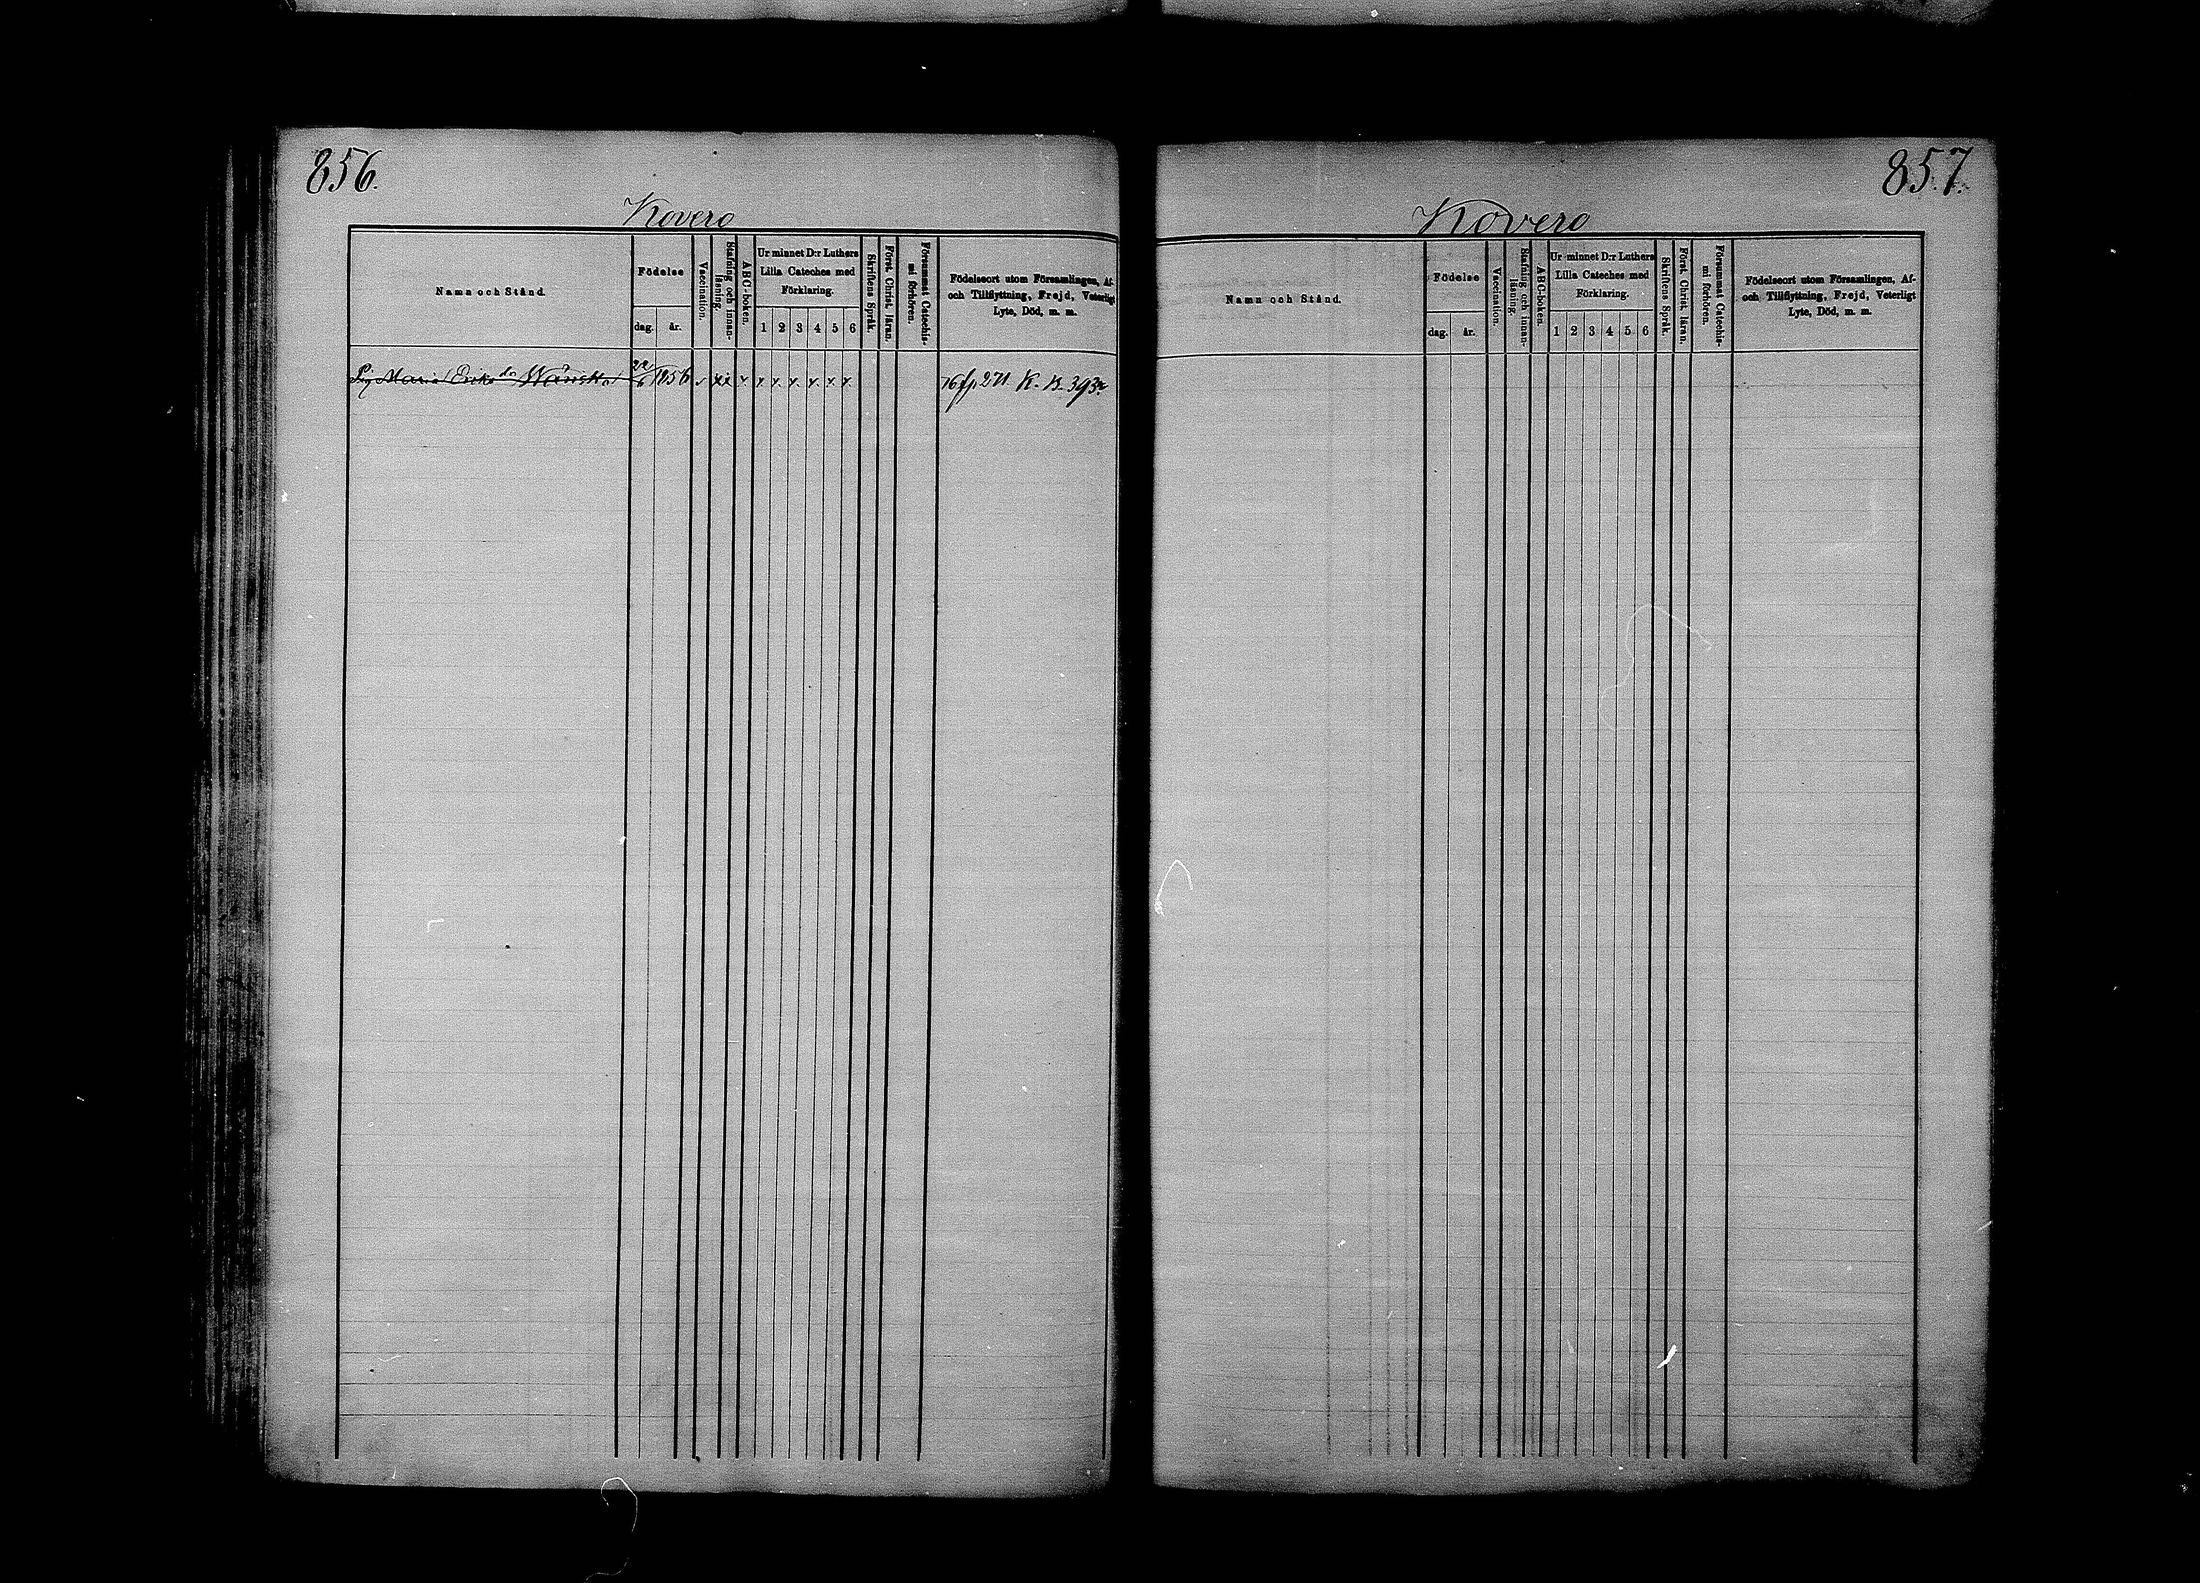 856.
Kovero
Namn och Stånd.
Födelse
dag.
år.
Vaccination.
Stafning och innan-
läsning.
ABC-boken.
Ur minnet D:r Luthers
Lilla Cateches med
Förklaring.
1 2 3 4 5 6
Skriftens Språk.
Först. Christ. läran.
Försummat Catechis-
mi förhören.
Födelseort utom Församlingen, Af-
och Tillflyttning, Frejd, Veterligt
Lyte, Död, m. m.
Pig Maria Eriksdr 22/6 1856 v xx x x x x x x x 76 fp 271 K. B. 393.
857.
Kovero
Namn och Stånd.
Födelse
dag.
år.
Vaccination.
Stafning och innan-
läsning.
ABC-boken.
Ur minnet D:r Luthers
Lilla Cateches med
Förklaring.
1 2 3 4 5 6
Skriftens Språk.
Först. Christ. läran.
Försummat Catechis-
mi förhören.
Födelseort utom Församlingen, Af-
och Tillflyttning, Frejd, Veterligt
Lyte, Död, m. m.